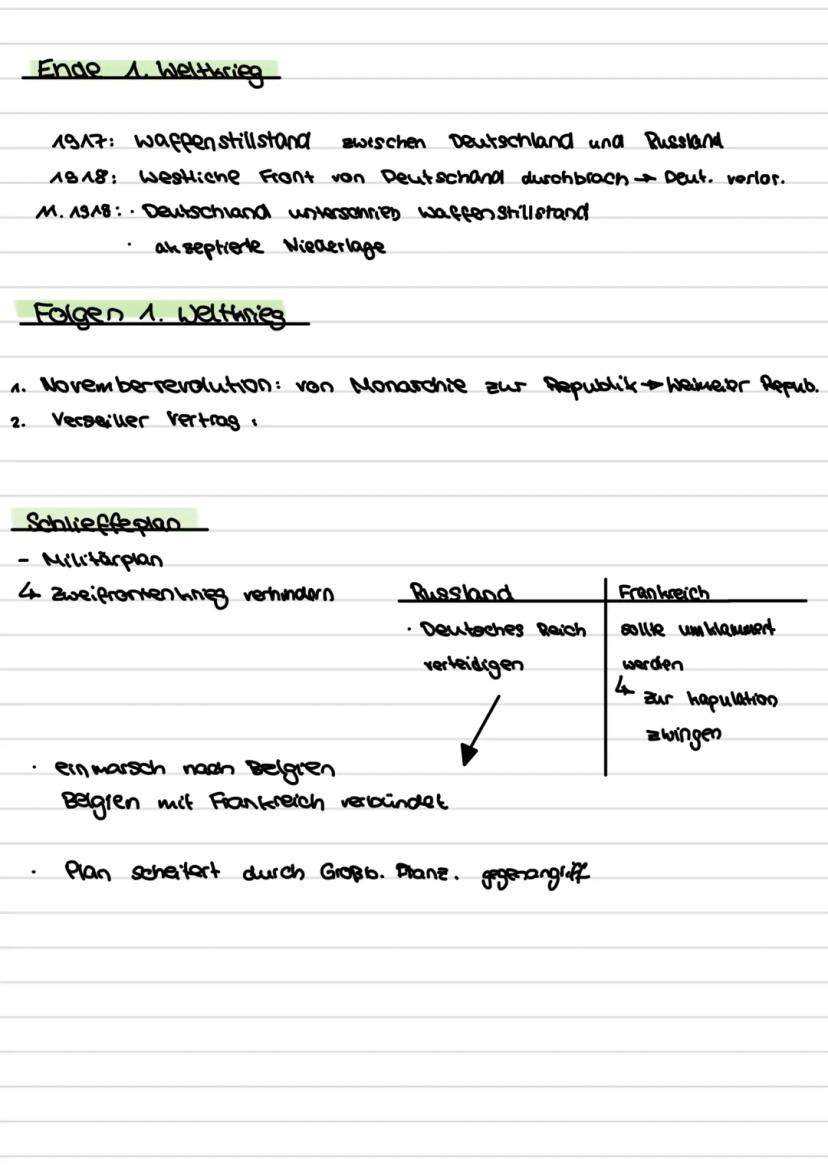 Ende 1. Weltkrieg
1917: Waffenstillstand zwischen Deutschland und Russland
1918: Westliche Front von Deutschand durchbrach → Deut. verlor.
11. 1918: · Deutschland unterschrieb Waffenstillstand
· akzeptierte Niederlage
Folgen 1. Weltkrieg
1. Novemberrevolution: von Monarchie zur Republik → Weimeror Repub.
2. Versailler Vertrag :
Schlieffeplan
- Militärplan
↳ Zweifrontenkrieg verhindern
Russland Frankreich
· Deutsches Reich sollte umklammert
verteidigen werden
↳ zur kapulation
zwingen
· einmarsch nach Belgien
Belgien mit Frankreich verbündet
· Plan scheitert durch Großb. Franz. gegenangriff